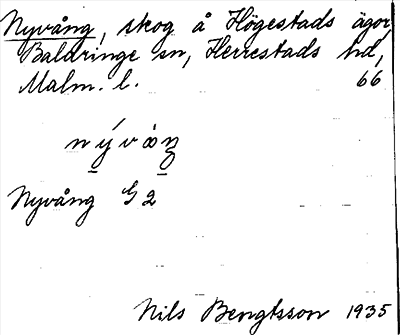 Nyvång, skog å Högestads ägor,
Baldringe sn, Herrestads hd,
Malm. l. 66
Nyvång G 2
Nils Bengtsson 1935